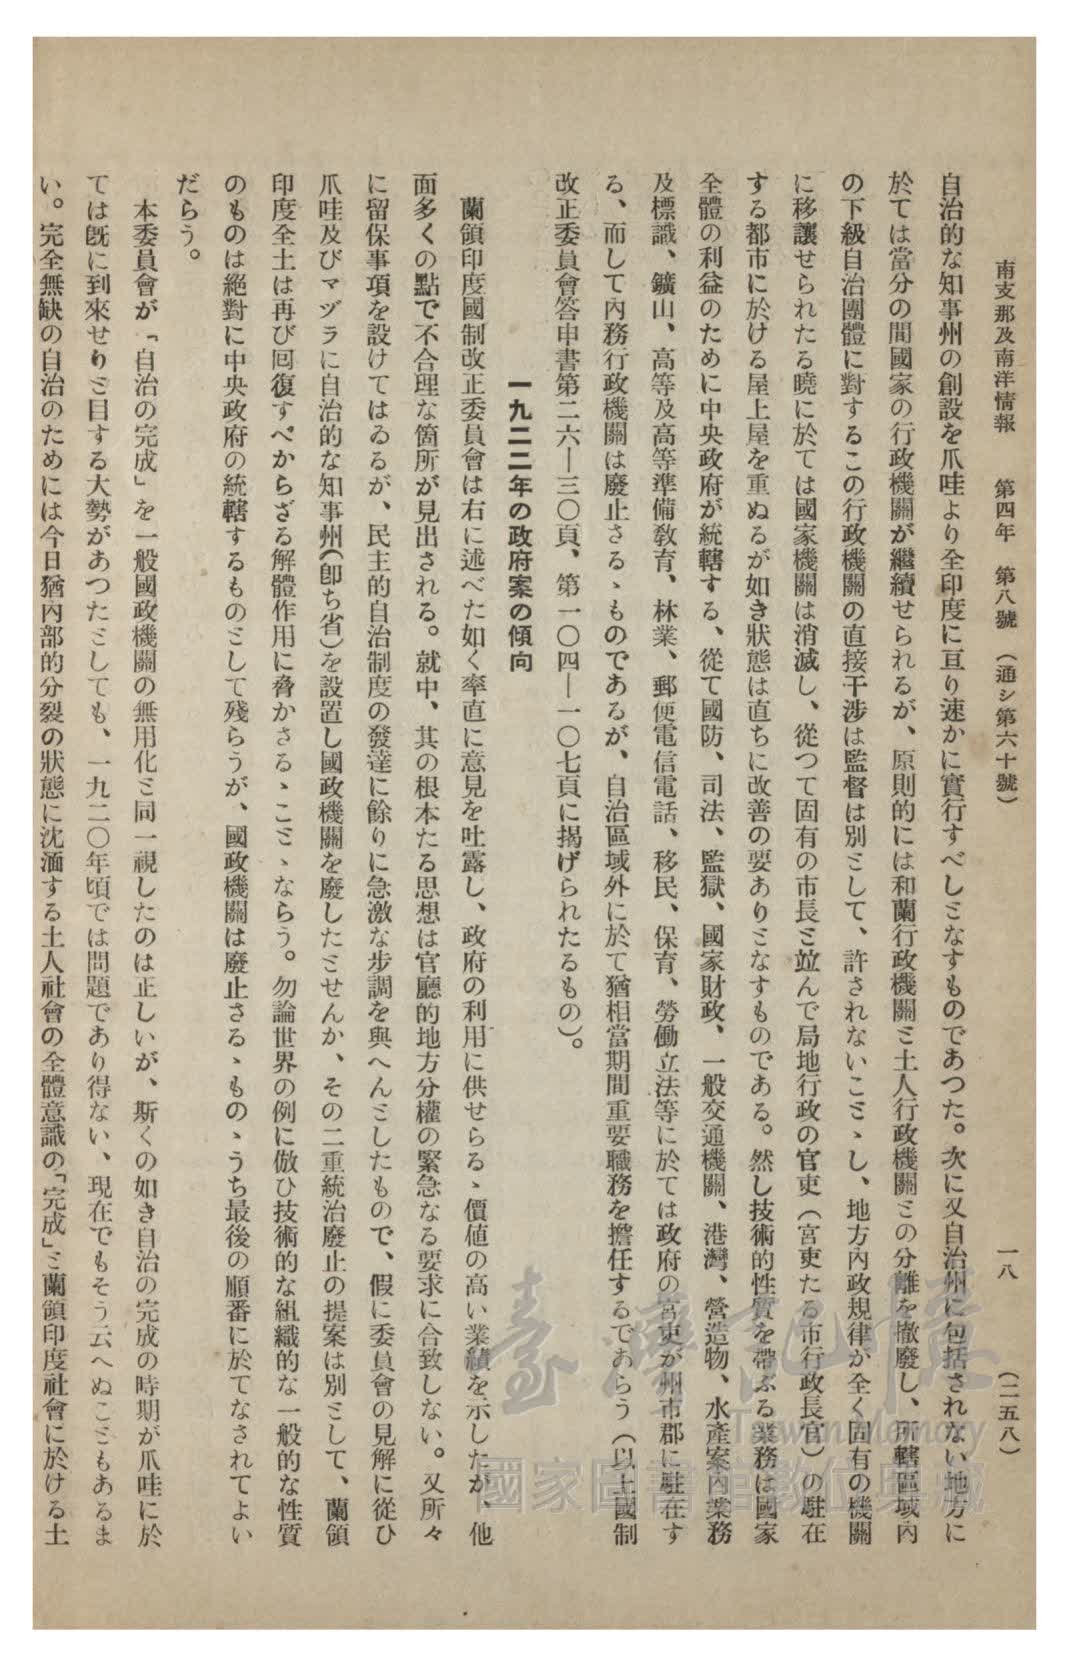 南支那及南洋情報　第四年　第八號　（通シ第六十號）　一八　（二五八）
自治的な知事州の創設を爪哇より全印度に亘り速かに實行すべしとなすものであつた。次に又自治州に包括されない地方に
於ては當分の間國家の行政機關が繼續せられるが、原則的には和蘭行政機關と土人行政機關との分離を撤廢し、所轄區域內
の下級自治團體に對するこの行政機關の直接干涉は監督は別として、許されないこと丶し、地方內政規律が全く固有の機關
に移讓せられたる曉に於ては國家機關は消滅し、從つて固有の市長と竝んで局地行政の官吏（官吏たる市行政長官）の駐在
する都市に於ける屋上屋を重ぬるが如き狀態は直ちに改善の要ありとなすものである。然し技術的性質を帶ぶる業務は國家
全體の利益のために中央政府が統轄する、從て國防、司法、監獄、國家財政、一般交通機關、港灣、營造物、水產案內業務
及標識、鑛山、高等及高等準備敎育、林業、郵便電信電話、移民、保育、勞働立法等に於ては政府の官吏が州市郡に駐在す
る、而して內務行政機關は廢止さる丶ものであるが、自治區域外に於て猶相當期間重要職務を擔任するであらう（以上國制
改正委員會答申書第二六―三〇頁、第一〇四―一〇七頁に揭げられたるもの）。
一九二二年の政府案の傾向
蘭領印度國制改正委員會は右に述べた如く率直に意見を吐露し、政府の利用に供せらる丶價値の高い業績を示したが、他
面多くの點で不合理な箇所が見出される。就中、其の根本たる思想は官廳的地方分權の緊急なる要求に合致しない。又所々
に留保事項を設けてはゐるが、民主的自治制度の發達に餘りに急激な步調を與へんとしたもので、假に委員會の見解に從ひ
爪哇及びマヅラに自治的な知事州（卽ち省）を設置し國政機關を廢したとせんか、その二重統治廢止の提案は別として、蘭領
印度全土は再び囘復すべからざる解體作用に脅かさる丶こと丶ならう。勿論世界の例に倣ひ技術的な組織的な一般的な性質
のものは絕對に中央政府の統轄するものとして殘らうが、國政機關は廢止さる丶もの丶うち最後の順番に於てなされてよい
だらう。
本委員會が「自治の完成」を一般國政機關の無用化と同一視したのは正しいが、斯くの如き自治の完成の時期が爪哇に於
ては旣に到來せりと目する大勢があつたとしても、一九二〇年頃では問題であり得ない、現在でもそう云へぬこともあるま
い。完全無缺の自治のためには今日猶內部的分裂の狀態に沈湎する土人社會の全體意識の「完成」と蘭領印度社會に於ける土
臺灣記憶
Taiwan Memory
國家圖書館數位典藏